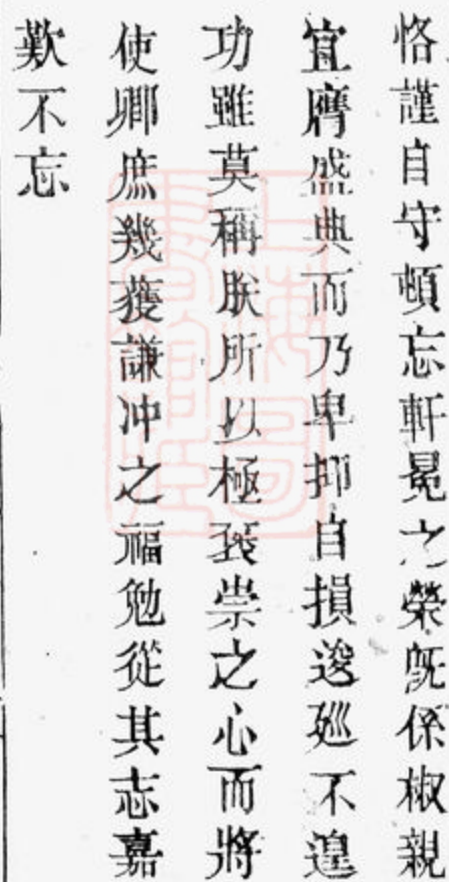 恪謹自守頓忘軒冕之榮既係椒親
宜膺盛典而乃卑抑自損逡廵不遑
功雖莫稱朕所以極褒崇之心而將
使卿庶幾獲謙冲之福勉從其志嘉
歎不忘